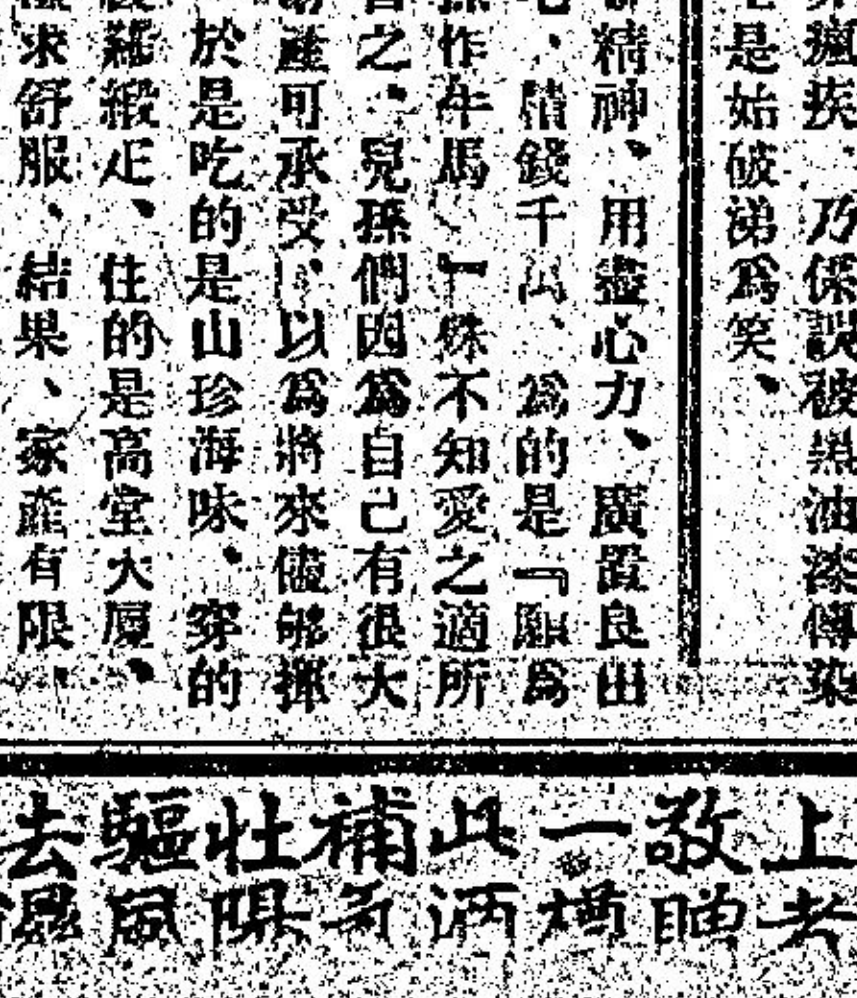 瘋疾、乃係誤被黑油漆傳染
是始破涕爲笑、
精神、用盡心力、廣置良田
、積錢千萬、爲的是『願爲
作牛馬、』殊不知愛之適所
之、兒孫們因爲自己有很大
產可承受、以爲將來儘够揮
於是吃的是山珍海味、穿的
羅緞疋、住的是高堂大厦、
求舒服、結果、家產有限、
上考
敬贈
一樽
此酒
補
壯陽
驅風
去濕